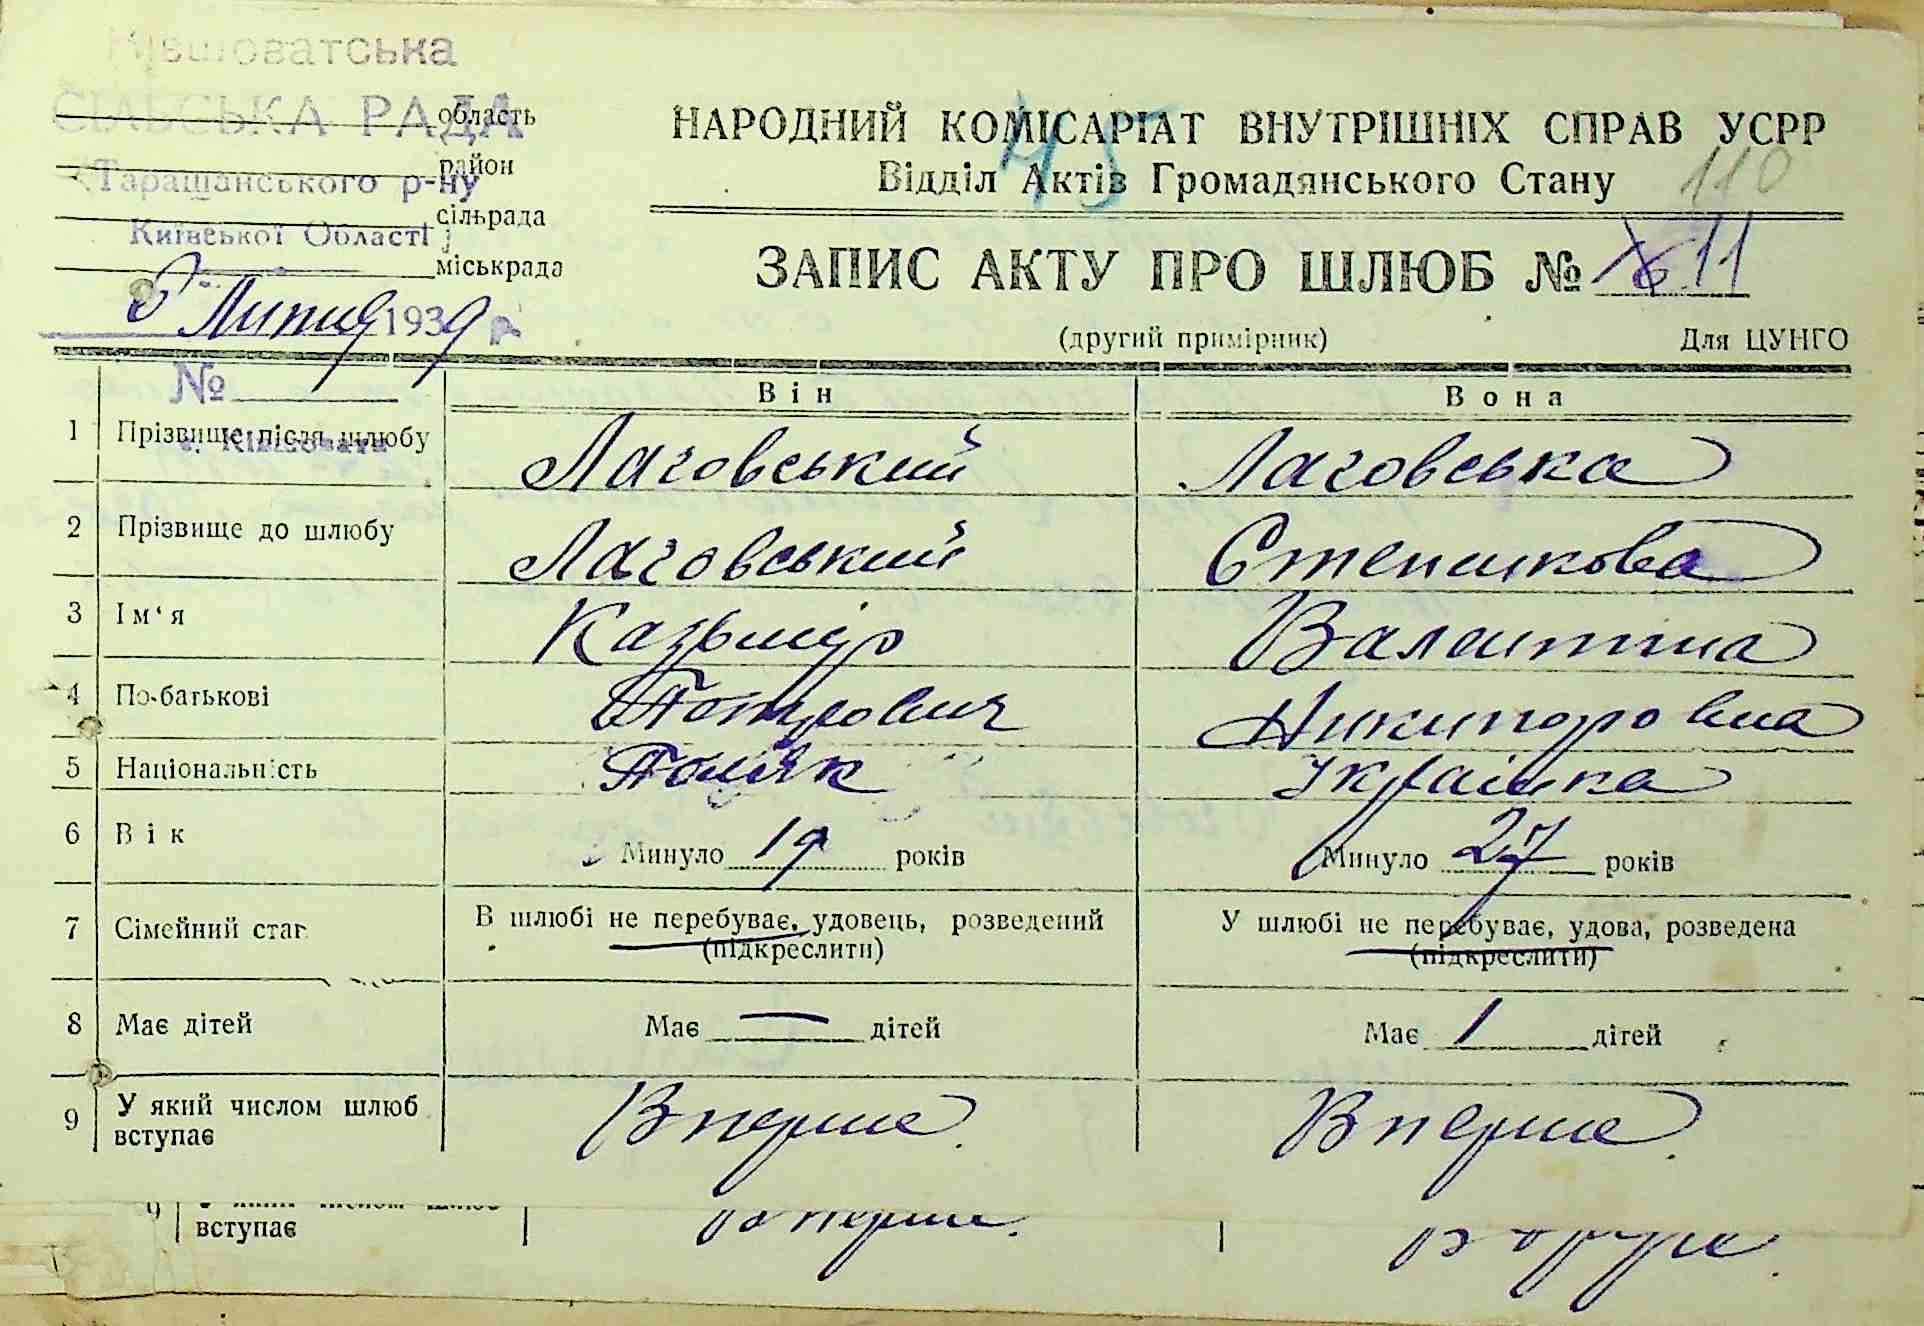 Ківшоватська
СІЛЬСЬКА РАДА
область
Таращанського р-ну
район
сільрада
Київської Області
міськрада
8 Липня 1939 р
№
с. Ківшовата
НАРОДНИЙ КОМІСАРІАТ ВНУТРІШНІХ СПРАВ УСРР
45
Відділ Актів Громадянського Стану
110
ЗАПИС АКТУ ПРО ШЛЮБ № 11
(другий примірник) Для ЦУНГО
Він Вона
1 Прізвище після шлюбу Лаговський Лаговська
2 Прізвище до шлюбу Лаговський Степчикова
3 Ім‘я Казьмір Валентина
4 По-батькові Петрович Никипоровна
5 Національність Поляк Українка
6 Вік Минуло 19 років Минуло 27 років
7 Сімейний стан В шлюбі не перебуває, удовець, розведений У шлюбі не перебуває, удова, розведена
(підкреслити) (підкреслити)
8 Має дітей Має — дітей Має 1 дітей
9 У який числом шлюб вступає Вперше. Вперше.
9 вступає Вперше. Вдруге.